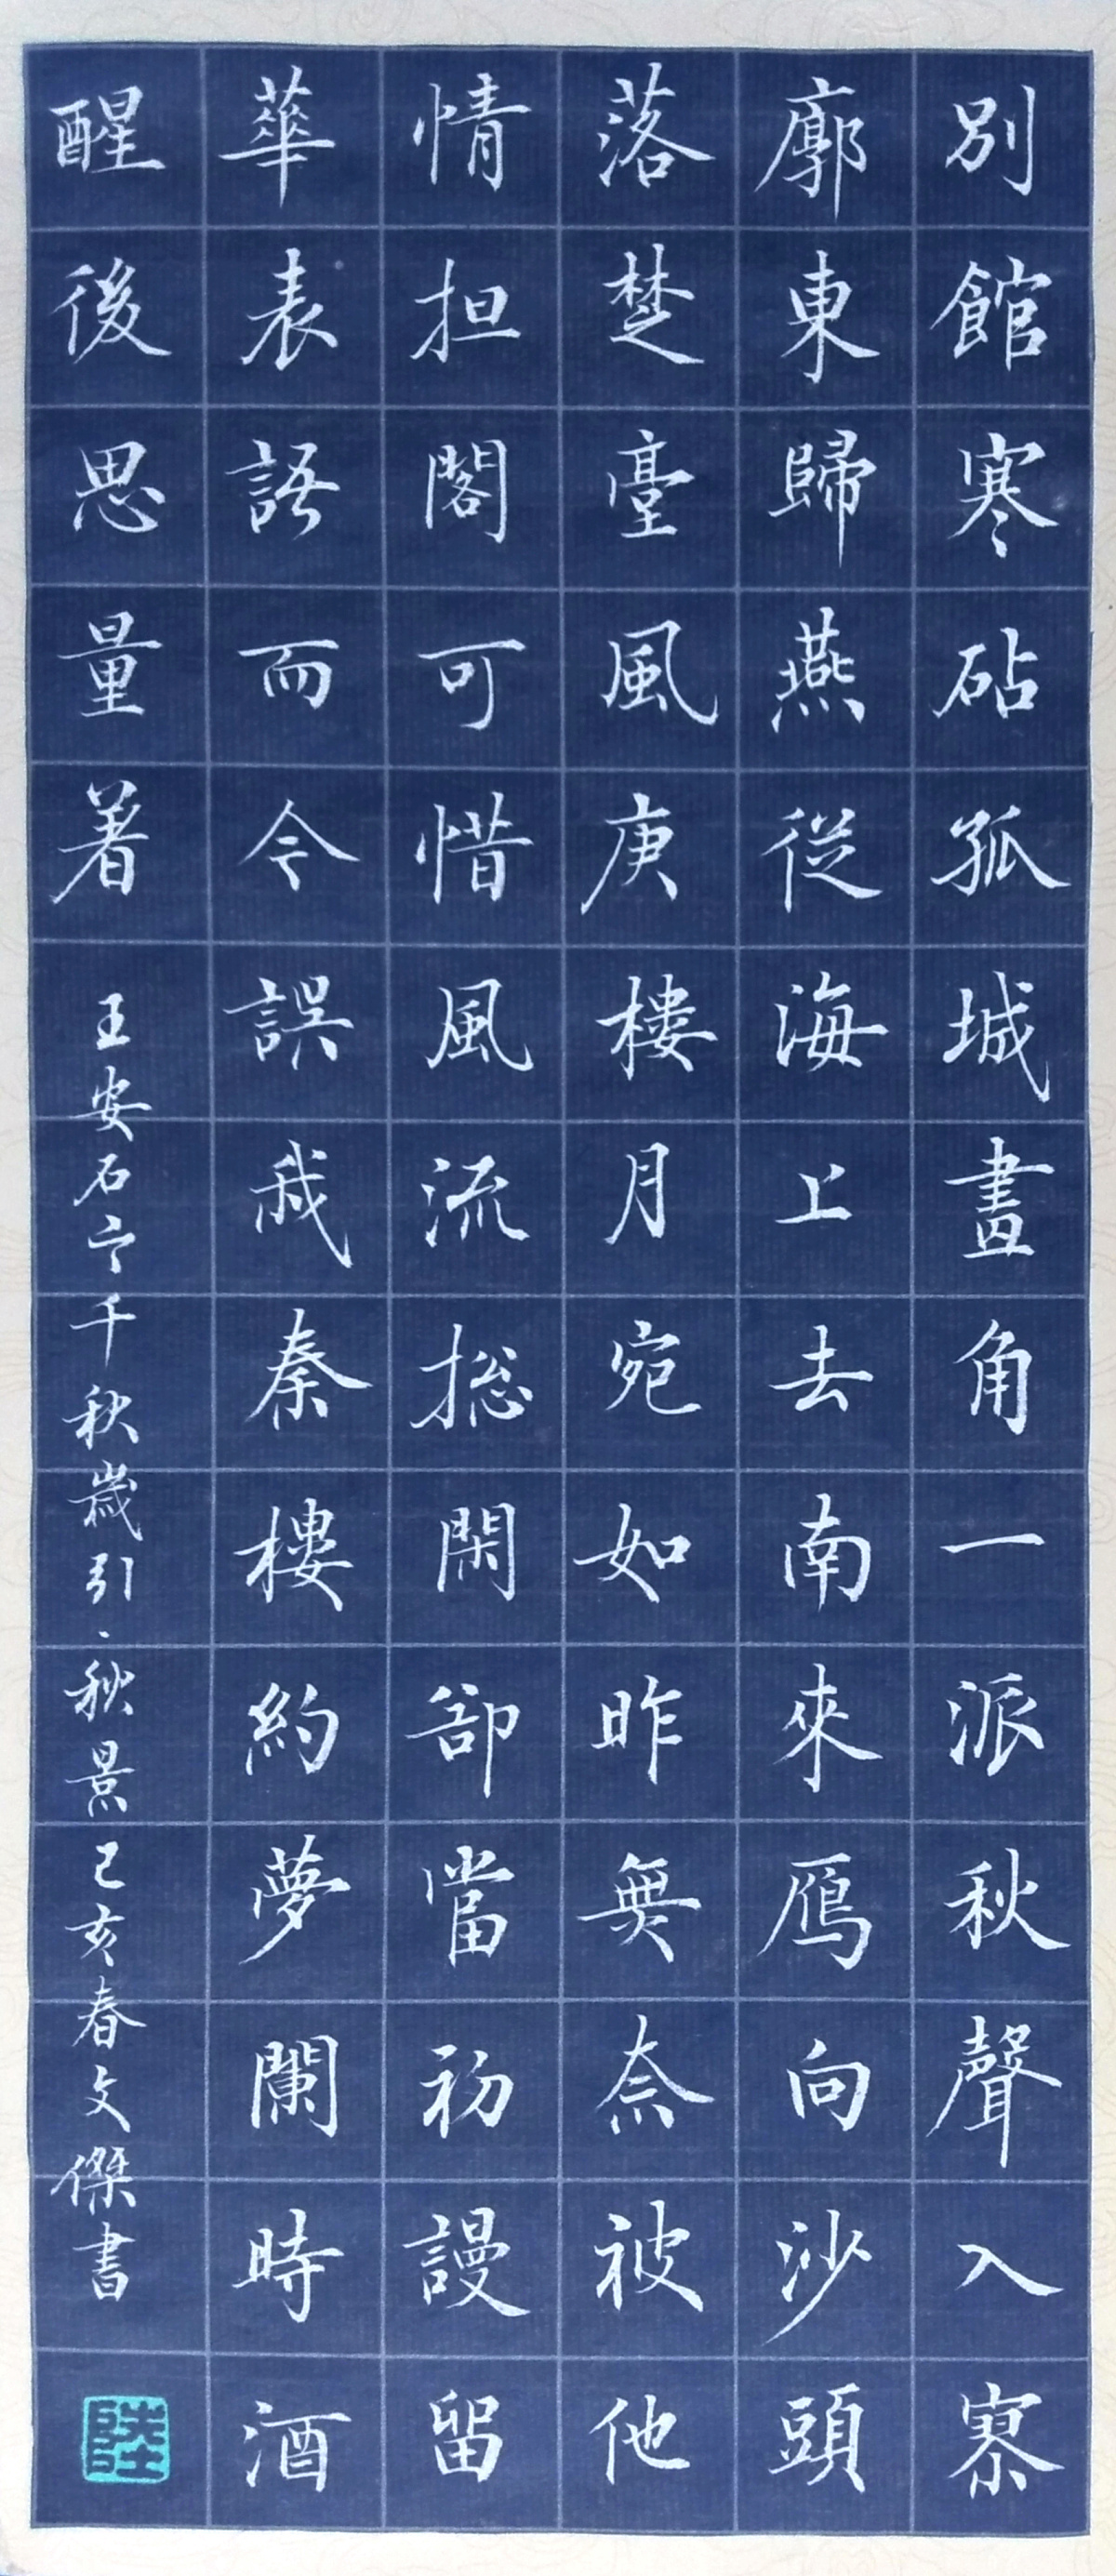 別館寒砧孤城畫角一派秋聲入寮
廓東歸燕從海上去南來鴈向沙頭
落楚臺風庚樓月宛如昨無奈被他
情担閣可惜風流捴閑郤當初謾留
華表語而今誤我秦樓約夢闌時酒
醒後思量著
王安石 千秋歲引·秋景己亥春文傑書
陸